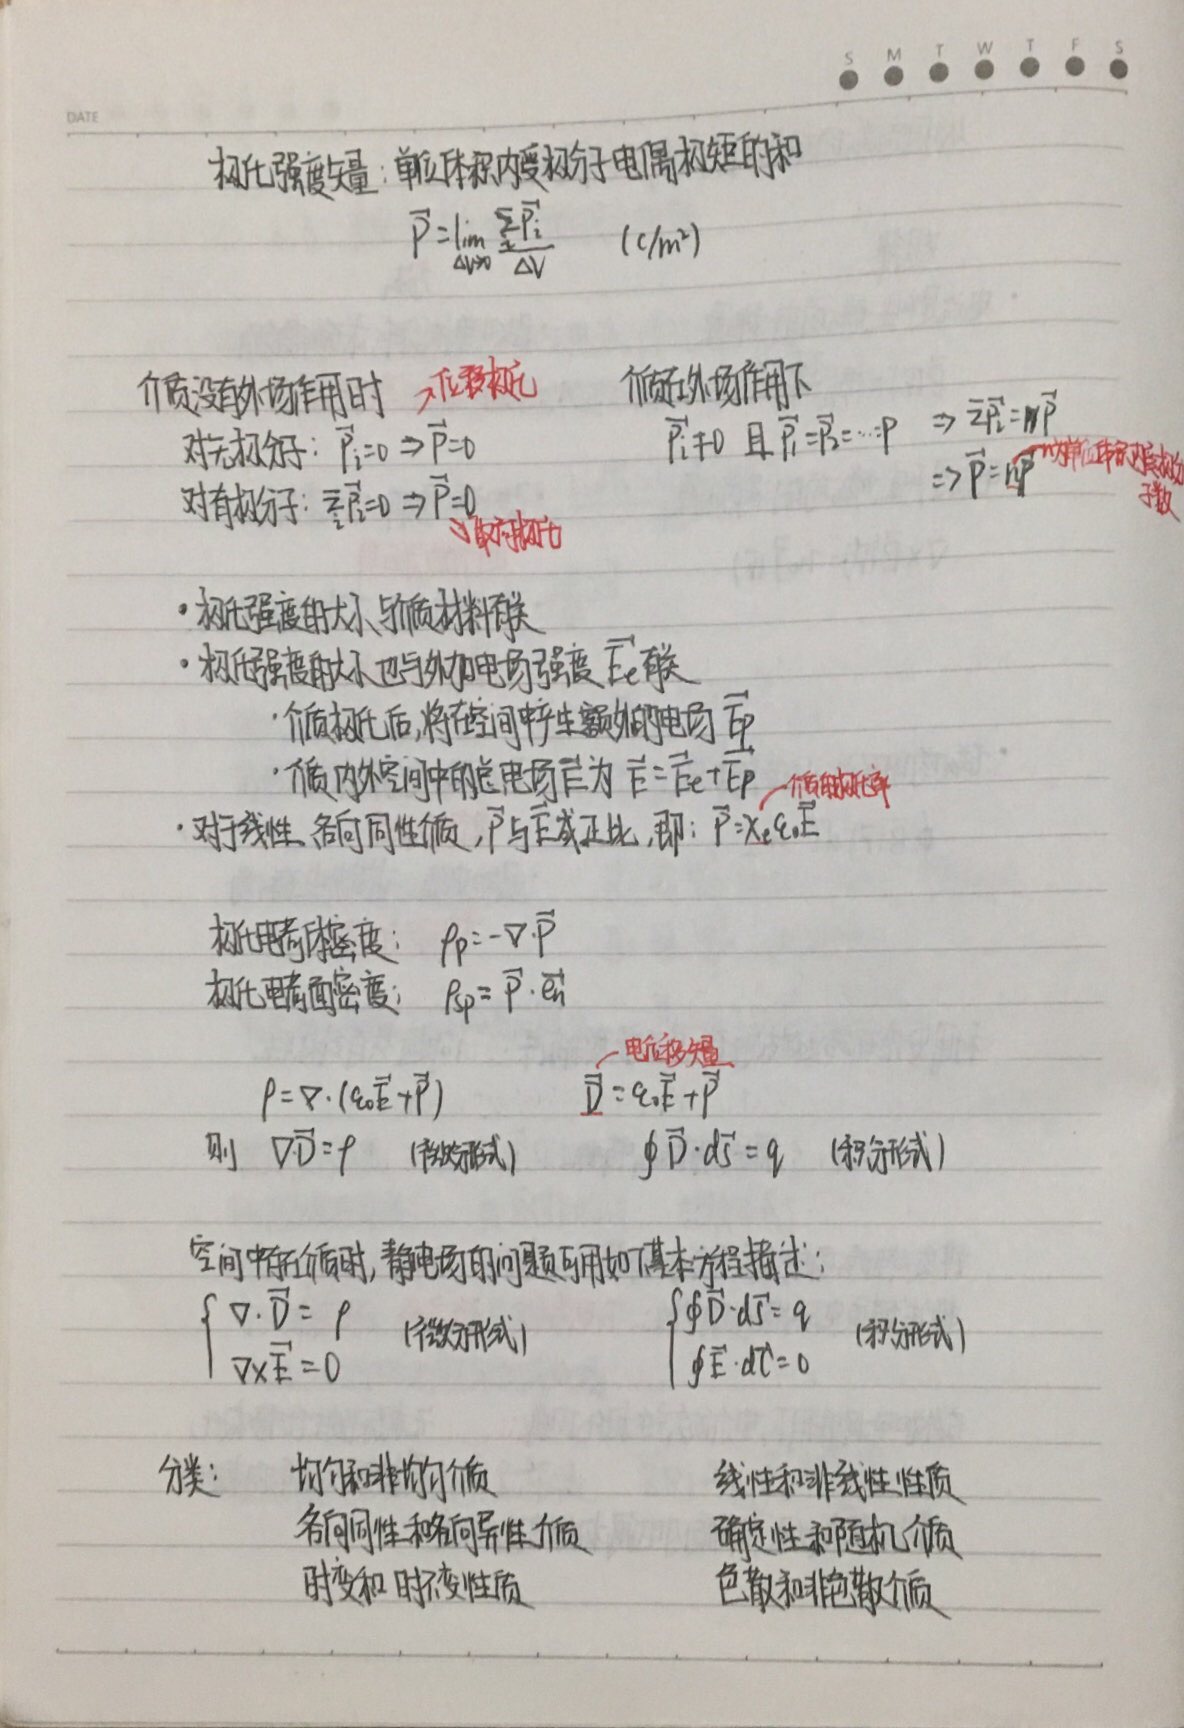 S M T W T F S
DATE
极化强度矢量：单位体积内受极分子电偶极矩的和
P⃗=lim ΔV→0 Σi P⃗i / ΔV (C/m²)
介质没有外场作用时 →位移极化
对无极分子：P⃗i=0 ⇒ P⃗=0
对有极分子：Σi P⃗i=0 ⇒ P⃗=0
↘取向极化
介质在外场作用下
P⃗i≠0 且 P⃗1=P⃗2=…=P ⇒ ΣP⃗i=NP⃗
⇒ P⃗=np⃗ n为单位体积内受极分子数
·极化强度的大小与介质材料有关
·极化强度的大小也与外加电场强度 E⃗e 有关
·介质极化后，将在空间中产生额外的电场 E⃗p
·介质内外空间中的总电场E⃗为 E⃗=E⃗e+E⃗p
介质的极化率
·对于线性、各向同性介质，P⃗与E⃗成正比，即：P⃗=χeε0E⃗
极化电荷体密度： ρp=-∇·P⃗
极化电荷面密度： ρsp=P⃗·e⃗n
电位移矢量
ρ=∇·(ε0E⃗+P⃗) D⃗=ε0E⃗+P⃗
则 ∇·D⃗=ρ (微分形式) ∮D⃗·dS⃗=q (积分形式)
空间中存在介质时，静电场的问题可用如下基本方程描述：
{ ∇·D⃗=ρ (微分形式) { ∮D⃗·dS⃗=q (积分形式)
∇×E⃗=0 ∮E⃗·dl⃗=0
分类： 均匀和非均匀介质 线性和非线性性质
各向同性和各向异性介质 确定性和随机介质
时变和时不变性质 色散和非色散介质